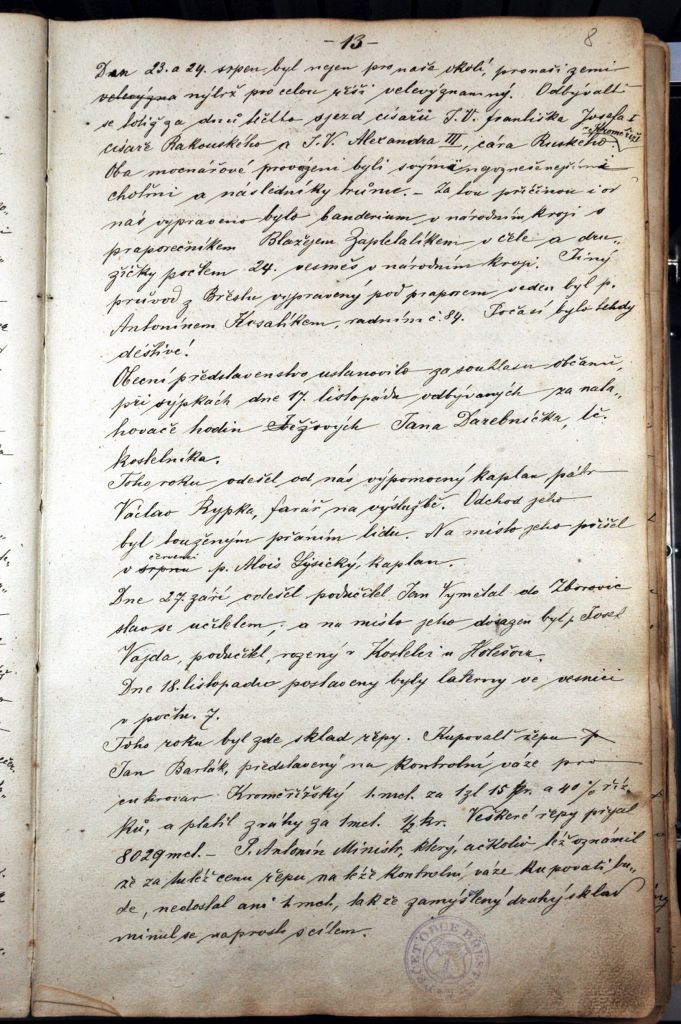 - 13 -
8
Den 23. a 24. srpen byl nejen pro naše okolí, pro naši zemi
velevýzna nýbrž pro celou říši velevýznamný. Odbývaltě
se totiž za dnů těchto sjezd císařů J. V. Františka Josefa I
v Kroměříži
císaře Rakouského a J. V. Alexandra III., cára Ruského.
Oba mocnářové provázeni byli svými nejvznešenějšími
chotěmi a následníky trůnu. – Za tou příčinou i od
nás vypraveno bylo banderium v národním kroji s
praporečníkem Blažejem Zapletalíkem v čele a dru„
žičky počtem 24. vesměs v národním kroji. Jiný
průvod z Břestu vypravený pod praporem veden byl p.
Antonínem Kosalíkem, radním č. 84. Počasí bylo tehdy
deštivé!
Obecní představenstvo ustanovilo za souhlasu občanů,
při sýpkách dne 17. listopadu odbývaných za nata„
hovače hodin věžových Jana Darebníčka, tč.
kostelníka.
Toho roku odešel od nás výpomocný kaplan páter
Václav Rypka, farář na výslužbě. Odchod jeho
byl touženým přáním lidu. Na místo jeho přišel
červenci
v srpnu p. Alois Lýsický, kaplan.
Dne 27. září odešel podučitel Jan Vymětal do Zborovic
stav se učitelem; a na místo jeho dosazen byl p. Josef
Vajda, podučitel, rozený v Kostelci u Holešova.
Dne 18. listopadu postaveny byly laterny ve vesnici
v počtu 7.
Toho roku byl zde sklad řepy. Kupovaltě řepu p
Jan Barták, představený na kontrolní váze pro
cukrovar Kroměřížský 1 mct. za 1 zl 15 kr. a 40% říz„
ků, a platil z váhy za 1 mct. ½ kr. Veškeré řepy přijal
8029 mct. – P. Antonín Ministr, který, ačkoliv též oznámil
že za tutéž cenu řepu na téže kontrolní váze kupovati bu„
de, nedostal ani 1 mct, takže zamýšlený druhý sklad
minul se naprosto s cílem.